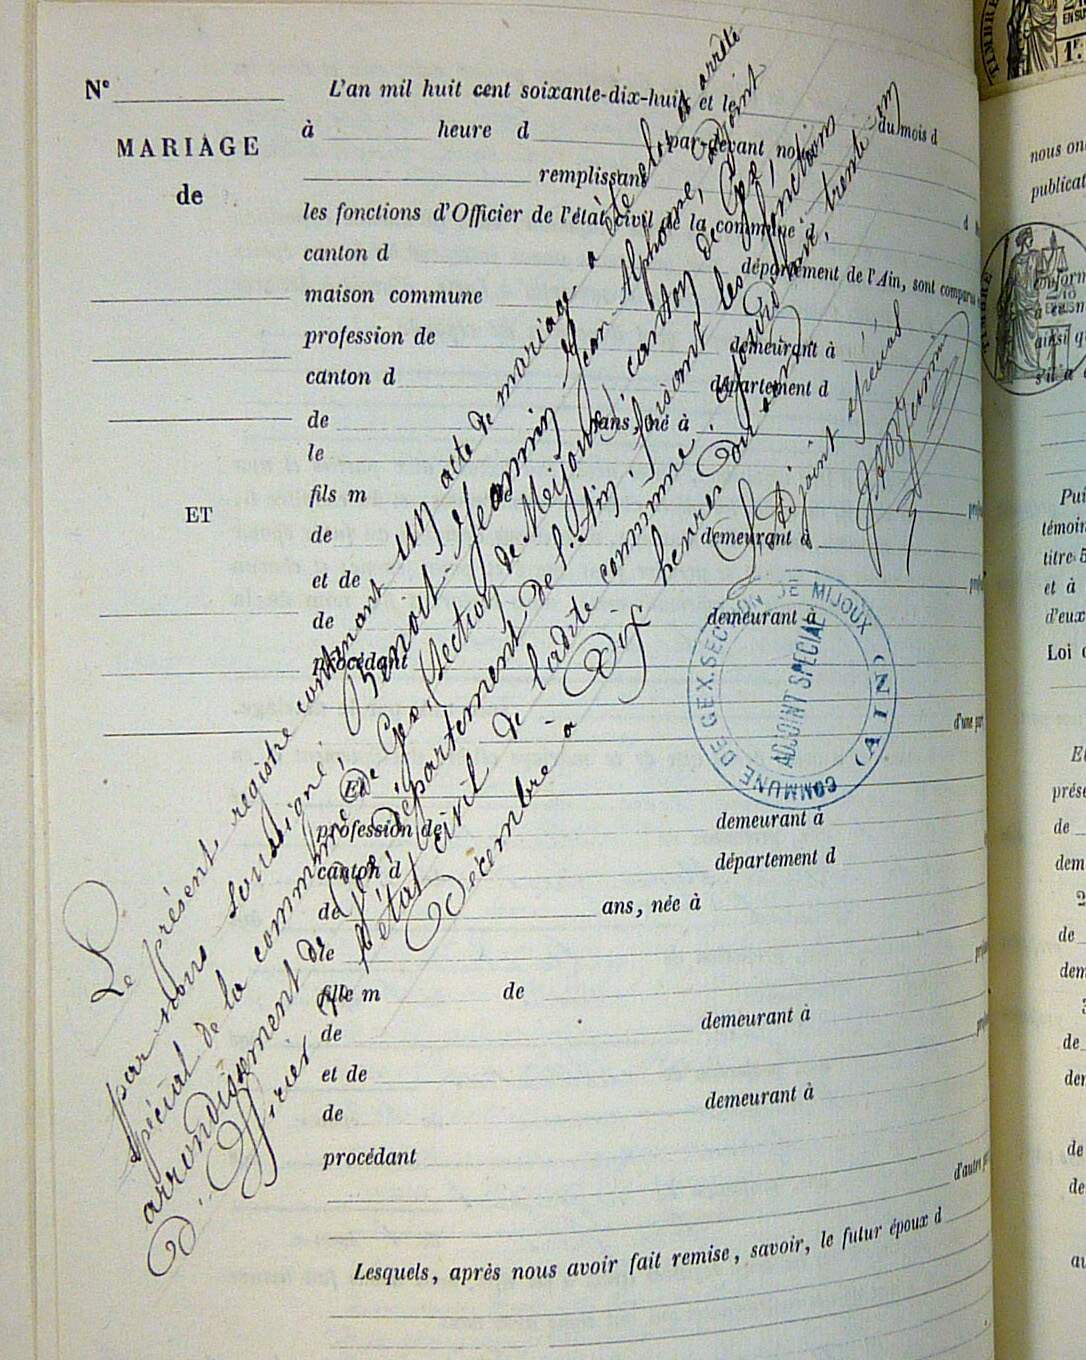 N°
MARIAGE
de
ET
L'an mil huit cent soixante-dix-huit et le du mois d
à heure d par-devant nous
remplissant
les fonctions d'Officier de l'état civil de la commune d
canton d département de l'Ain, sont comparus
maison commune
profession de demeurant à
canton d département d
de ans, né à
le
fils m de
de demeurant à
et de
de demeurant à
procédant
d'une part
Et
profession de demeurant à
canton d département d
de ans, née à
le
fille m de
de demeurant à
et de
de demeurant à
procédant
d'autre par
Lesquels, après nous avoir fait remise, savoir, le futur époux d
Le présent registre contenant un acte de mariage a été clos et arrêté
par nous soussigné, Benoit-Jeannin Jean-Alphonse, adjoint
spécial de la commune de Gex, Section de Mijoux, canton de Gex,
arrondissement de Gex, département de l'Ain, faisant les fonctions
d'Officier de l'état civil de ladite commune, aujourd'hui, trente un
Décembre à Dix heures du
L'Adjoint spécial
COMMUNE DE GEX. SECTION DE MIJOUX
(AIN)
ADJOINT SPECIAL
TIMBRE
1F.
nous on
publicat
conform
ainsi q
s'il a
Pui
témoin
titre 5
et à
d'eux
Loi
prése
de
dem
2
de
dem
3
de
de
de
au